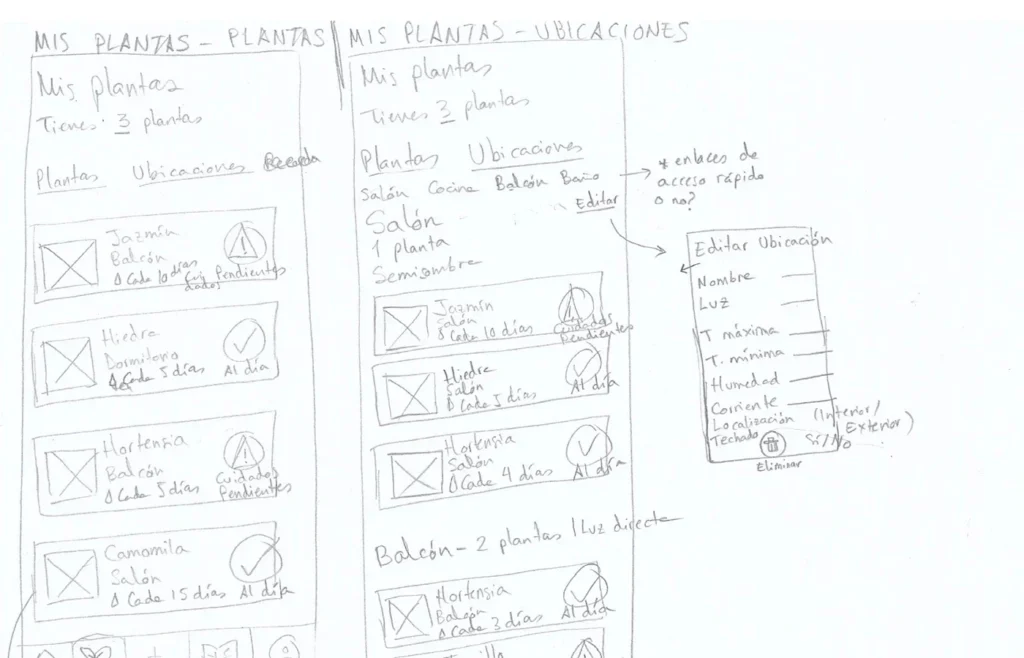 MIS PLANTAS - PLANTAS
Mis plantas
Tienes 3 plantas
Plantas Ubicaciones
Jazmín
Balcón
Cada 10 días
Cuidados Pendientes
Hiedra
Dormitorio
Cada 5 días
Al día
Hortensia
Balcón
Cada 5 días
Cuidados
Pendientes
Camomila
Salón
Cada 15 días
Al día
MIS PLANTAS - UBICACIONES
Mis plantas
Tienes 3 plantas
Plantas Ubicaciones
Salón Cocina Balcón Baño
Editar
Salón
1 planta
Semisombre
Jazmín
Salón
Cada 10 días
Cuidados
Pendientes
Hiedra
Salón
Cada 5 días
Al día
Hortensia
Salón
Cada 4 días
Al día
Balcón - 2 plantas / Luz directa
Hortensia
Balcón
Cada 3 días
Al día
* enlaces de
acceso rápido
o no?
Editar Ubicación
Nombre
Luz
T máxima
T. mínima
Humedad
Corriente
Localización (Interior/
Exterior)
Techado Sí/No
Eliminar